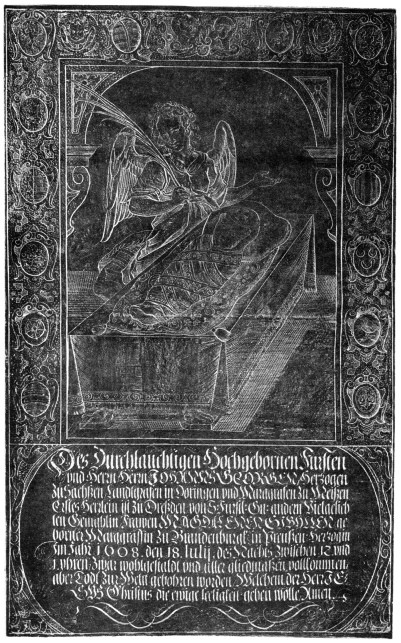 Des Durchlauchtigen Hochgebornen Fursten
und Herrn Herrn IOHANNS GEORGEN Herzogen
zu Sachssen Landgrafen in Döringen und Marggrafen zu Meissen
Erstes Herrlein ist zu Dresden von S. Fürstl. Gn. andern
len Gemahlin Frawen MAGDALENEN SIBYLLEN ge
borner Marggräfin zu Brandenburgk in Preussen Herzogin
Im Jahr 1608. den 18. Iulij. des Nachts zwischen 12 und
1. uhren. Zwar wohlgestaldt und aller gliedmassen vollkommen
aber Todt zur Welt gebohren worden. Welchem der Herr IE
SVS Christus die ewige seeligkeit geben wolle Amen.